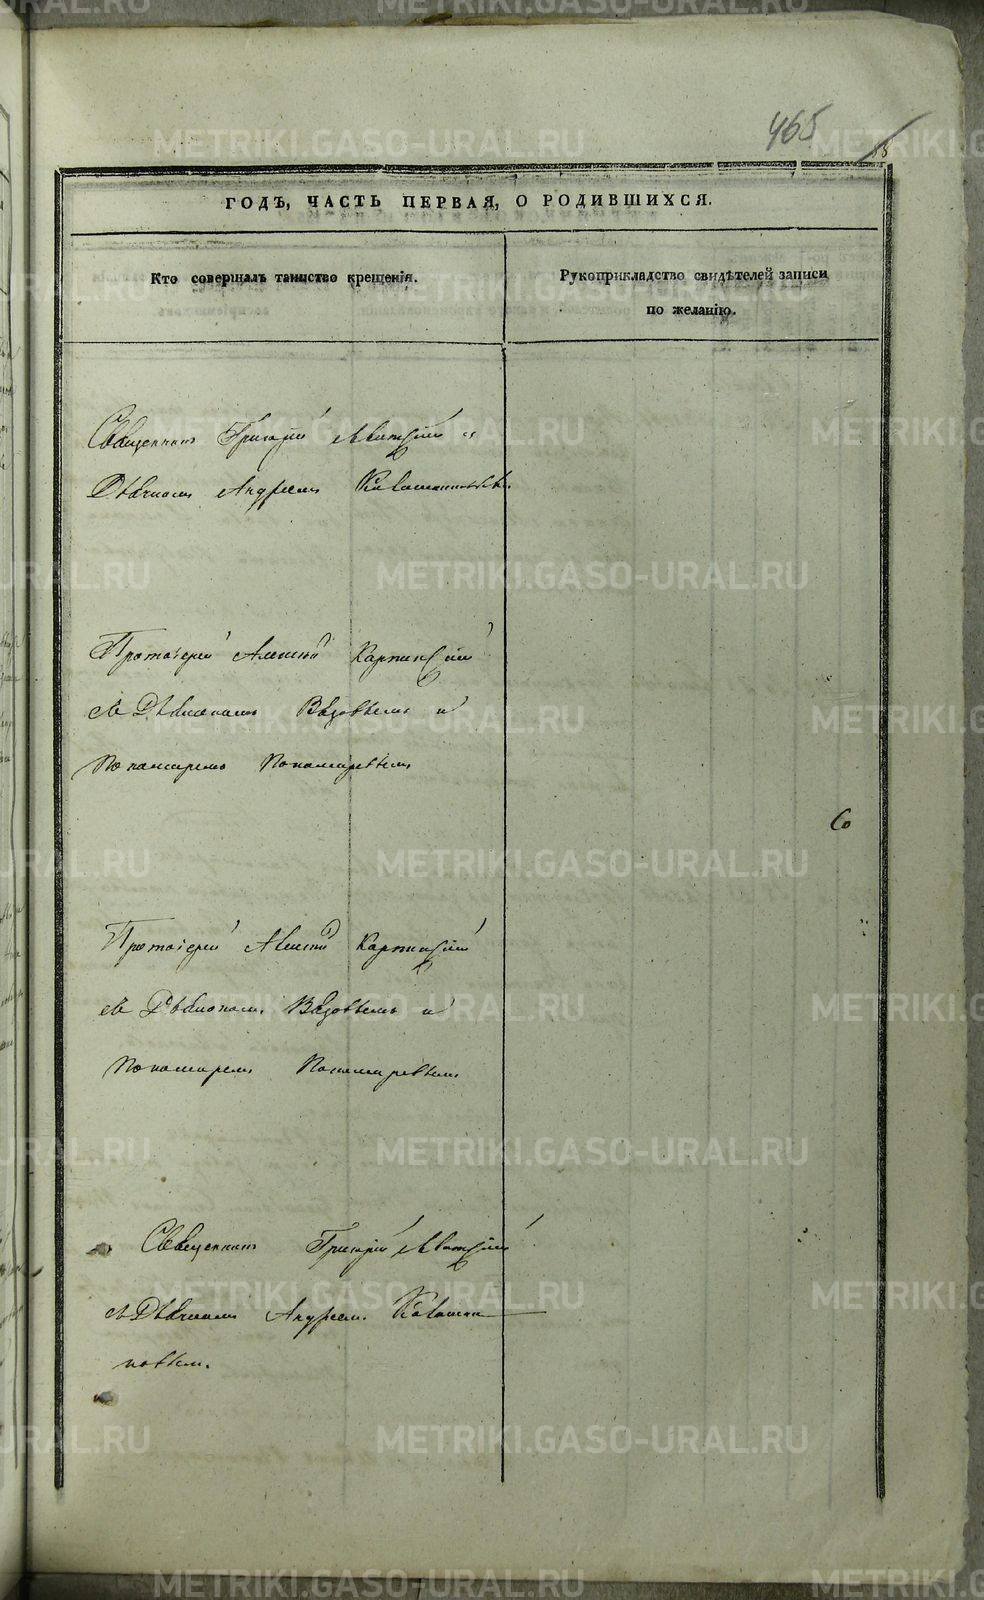 465
ГОДЪ, ЧАСТЬ ПЕРВАЯ, О РОДИВШИХСЯ.
Кто совершалъ таинство крещенія.
Рукоприкладство свидѣтелей записи
по желанію.
Священникъ Григорій съ
Дьячкомъ Андреемъ
Протоіерей Алексій Карпинскій
съ Діакономъ и
Пономаремъ Пономаревымъ
Протоіерей Алексій Карпинскій
съ Діакономъ и
Пономаремъ Пономаревымъ
Священникъ Григорій
съ Дьячкомъ Андреемъ
METRIKI.GASO-URAL.RU